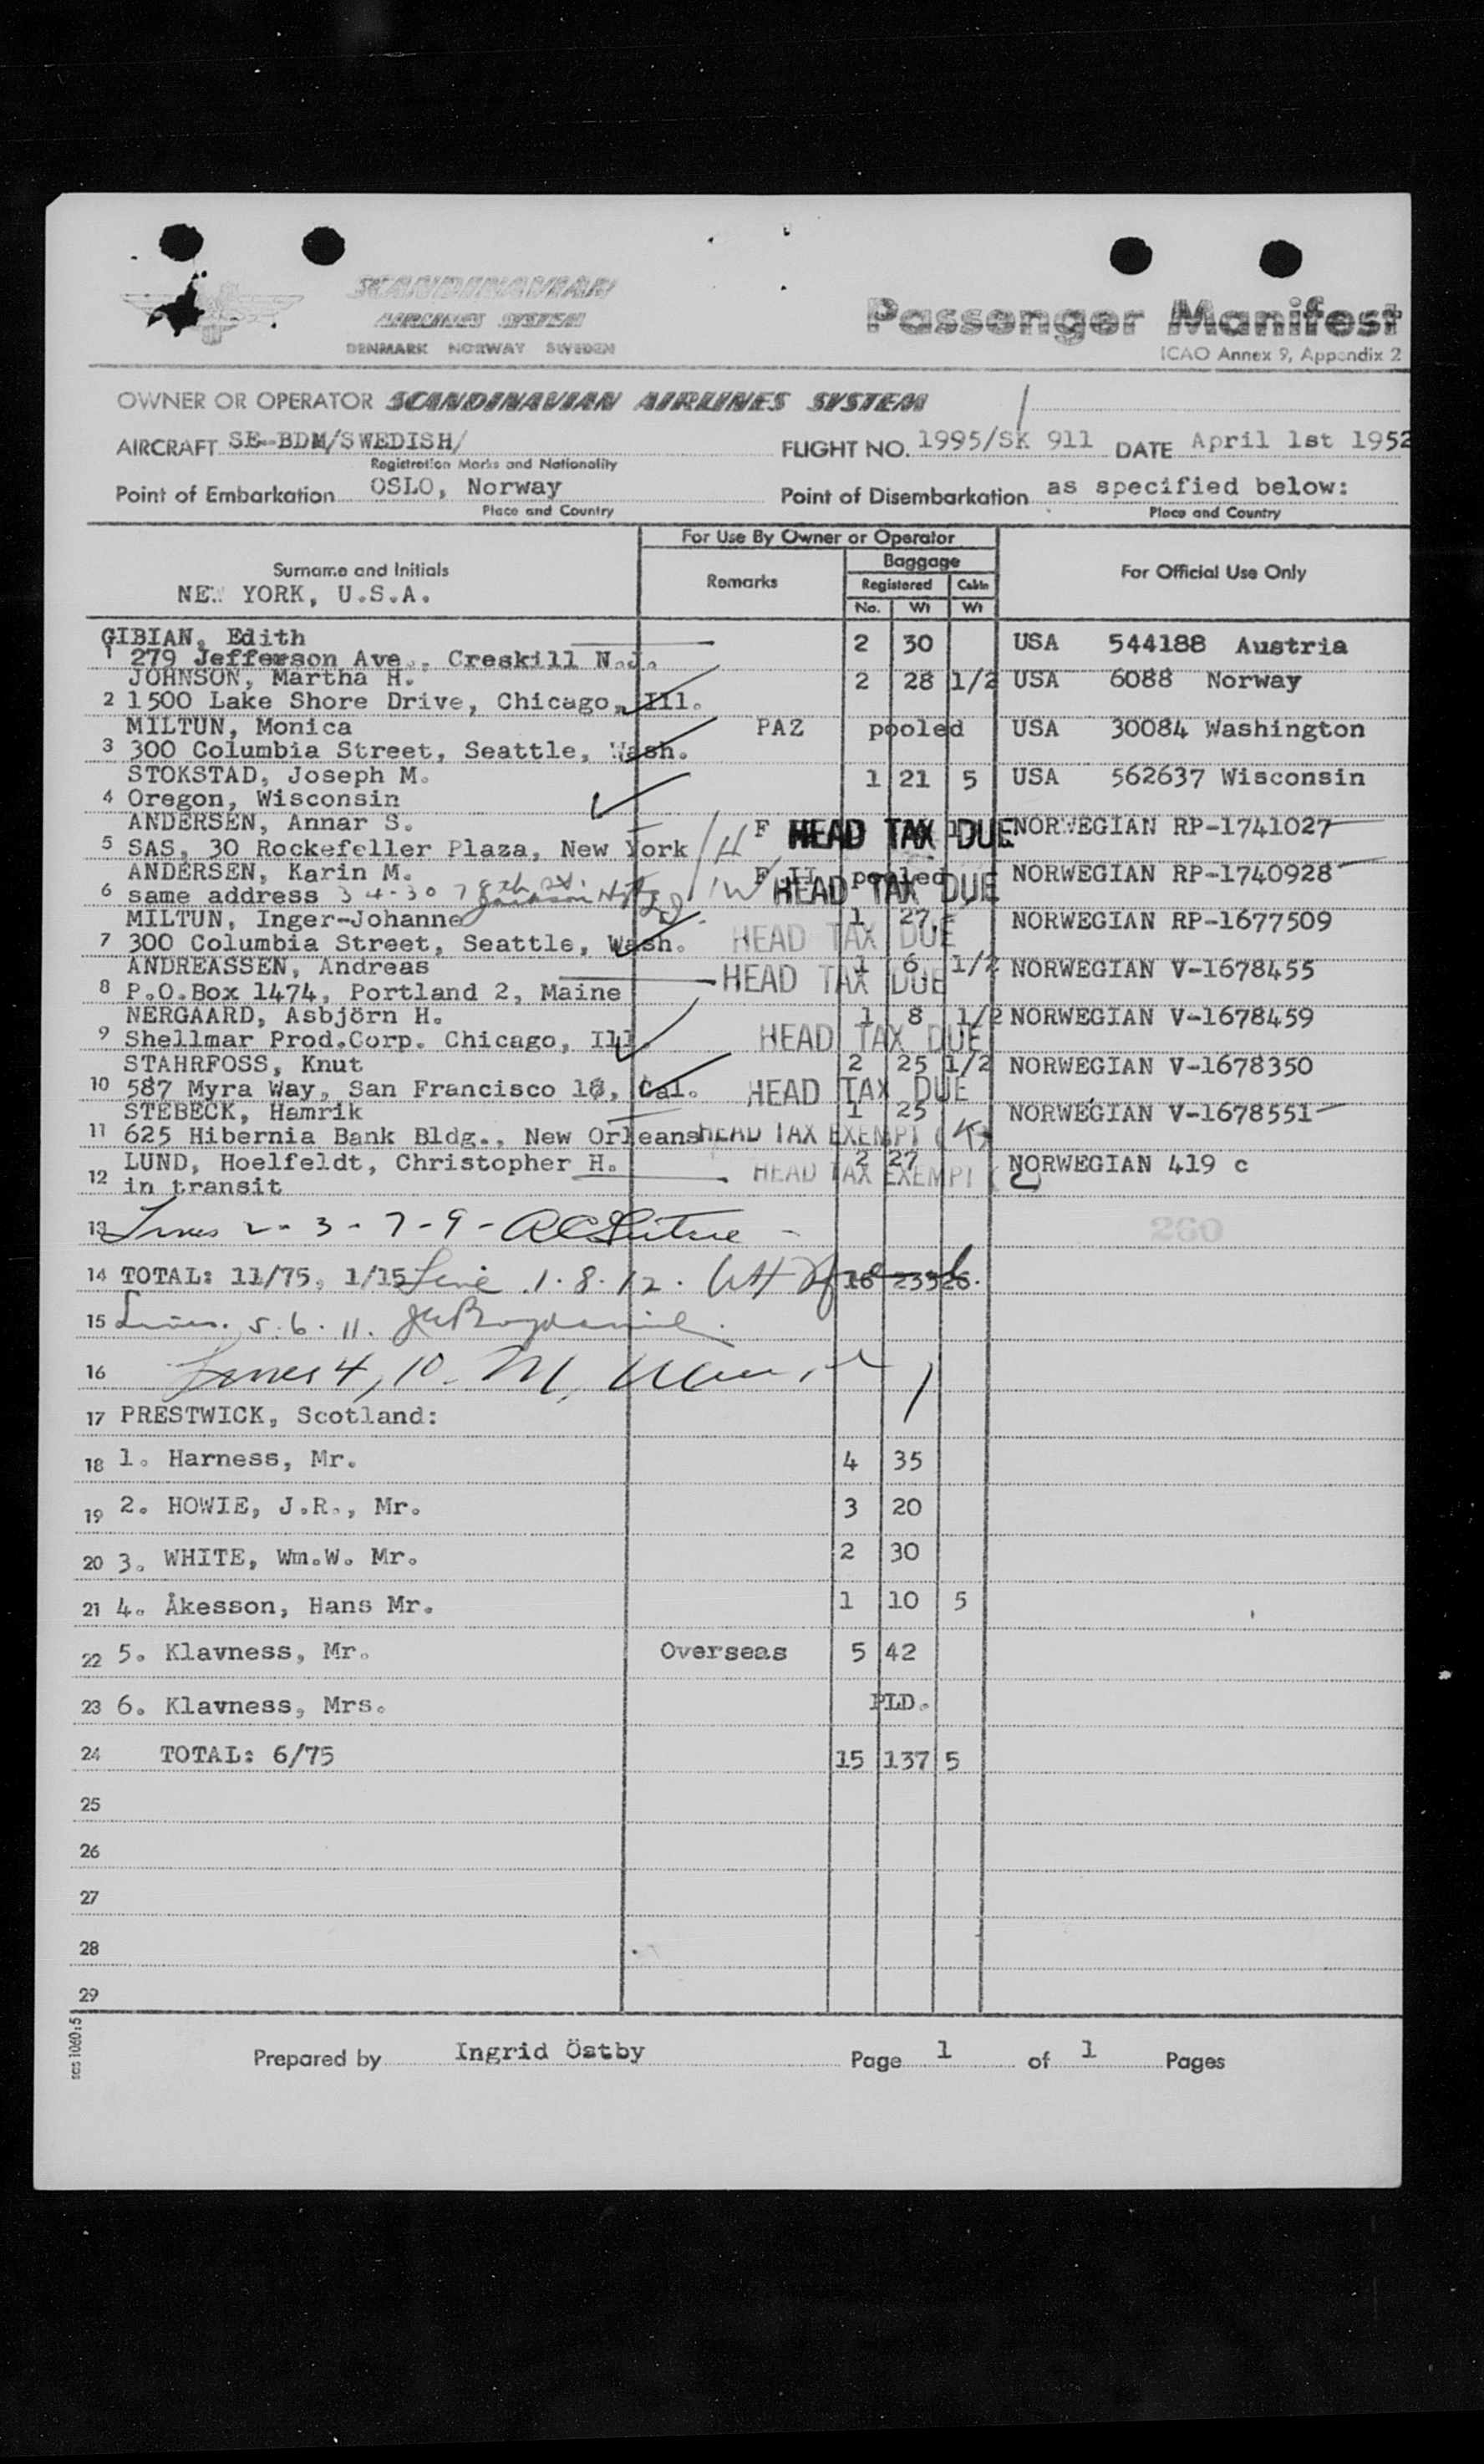 SCANDINAVIAN
AIRLINES SYSTEM
DENMARK NORWAY SWEDEN
Passenger Manifest
ICAO Annex 9, Appendix 2
OWNER OR OPERATOR SCANDINAVIAN AIRLINES SYSTEM
AIRCRAFT SE-BDM/SWEDISH/ FLIGHT NO. 1995/SK 911 DATE April 1st 1952
Registration Marks and Nationality
Point of Embarkation OSLO, Norway Point of Disembarkation as specified below:
Place and Country Place and Country
For Use By Owner or Operator
Surname and Initials Remarks Baggage For Official Use Only
Registered Cabin
NEW YORK, U.S.A.
No. Wt Wt
GIBIAN, Edith 2 30 USA 544188 Austria
1 279 Jefferson Ave., Creskill N.J.
JOHNSON, Martha H. 2 28 1/2 USA 6088 Norway
2 1500 Lake Shore Drive, Chicago, Ill.
MILTUN, Monica PAZ pooled USA 30084 Washington
3 300 Columbia Street, Seattle, Wash.
STOKSTAD, Joseph M. 1 21 5 USA 562637 Wisconsin
4 Oregon, Wisconsin
ANDERSEN, Annar S. F HEAD TAX DUE NORWEGIAN RP-1741027
5 SAS, 30 Rockefeller Plaza, New York
ANDERSEN, Karin M. pooled HEAD TAX DUE NORWEGIAN RP-1740928
6 same address 34-30 78th St.
MILTUN, Inger-Johanne 1 27 NORWEGIAN RP-1677509
7 300 Columbia Street, Seattle, Wash. HEAD TAX DUE
ANDREASSEN, Andreas 1 6 1/2 NORWEGIAN V-1678455
8 P.O.Box 1474, Portland 2, Maine HEAD TAX DUE
NERGAARD, Asbjörn H. 1 8 1/2 NORWEGIAN V-1678459
9 Shellmar Prod.Corp. Chicago, Ill. HEAD TAX DUE
STAHRFOSS, Knut 2 25 1/2 NORWEGIAN V-1678350
10 587 Myra Way, San Francisco Cal. HEAD TAX DUE
STEBECK, Hamrik 1 25 NORWEGIAN V-1678551
11 625 Hibernia Bank Bldg., New Orleans HEAD TAX EXEMPT
LUND, Hoelfeldt, Christopher H. 2 27 NORWEGIAN 419 c
12 in transit HEAD TAX EXEMPT
13 Lines 2-3-7-9- 260
14 TOTAL: 11/75, 1/15 Line 1.8.12.
15 Lines. 5.6.11.
16 Lines 4, 10. M.
17 PRESTWICK, Scotland:
18 1. Harness, Mr. 4 35
19 2. HOWIE, J.R., Mr. 3 20
20 3. WHITE, Wm.W. Mr. 2 30
21 4. Åkesson, Hans Mr. 1 10 5
22 5. Klavness, Mr. Overseas 5 42
23 6. Klavness, Mrs. PLD.
24 TOTAL: 6/75 15 137 5
25
26
27
28
29
sas 1060:5
Prepared by Ingrid Östby Page 1 of 1 Pages